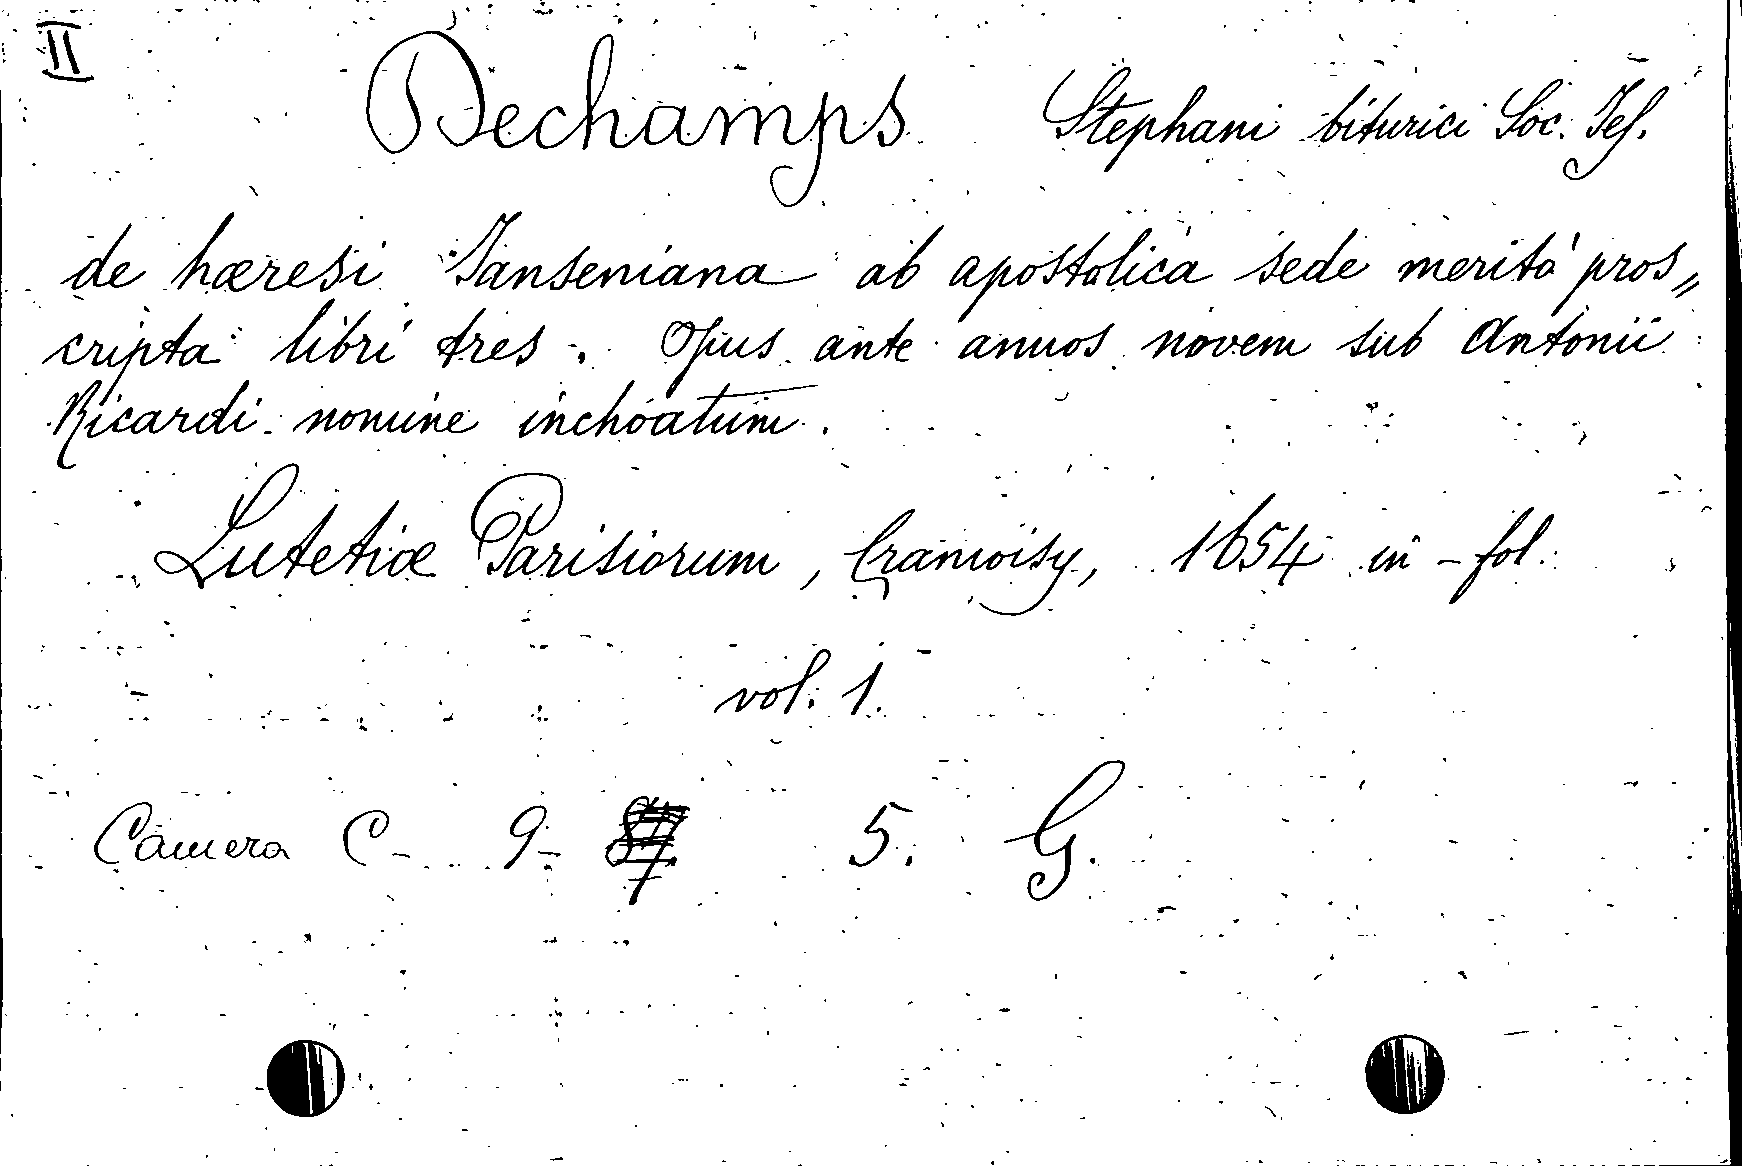 II
Dechamps Stephani biturici Soc. Jes.
de hæresi Janseniana ab apostolica sede meritò pros„
cripta libri tres. Opus ante annos novem sub Antonii
Ricardi nomine inchoatum.
Lutetiæ Parisiorum, Cramoisy, 1654 in-fol.
vol. 1.
Camera C- 9- 5. G.